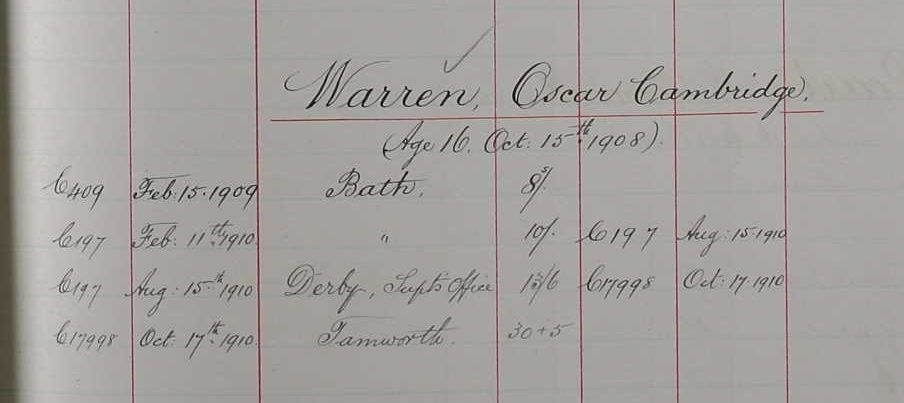 Warren, Oscar Cambridge.
(Age 16. Oct: 15th 1908).
C409 Feb: 15. 1909 Bath. 8/.
C197 Feb: 11th 1910 " 10/. C197 Aug: 15. 1910
C197 Aug: 15th 1910 Derby, Supts Office 13/6 C17998 Oct: 17. 1910
C17998 Oct: 17th 1910 Tamworth. 30+5